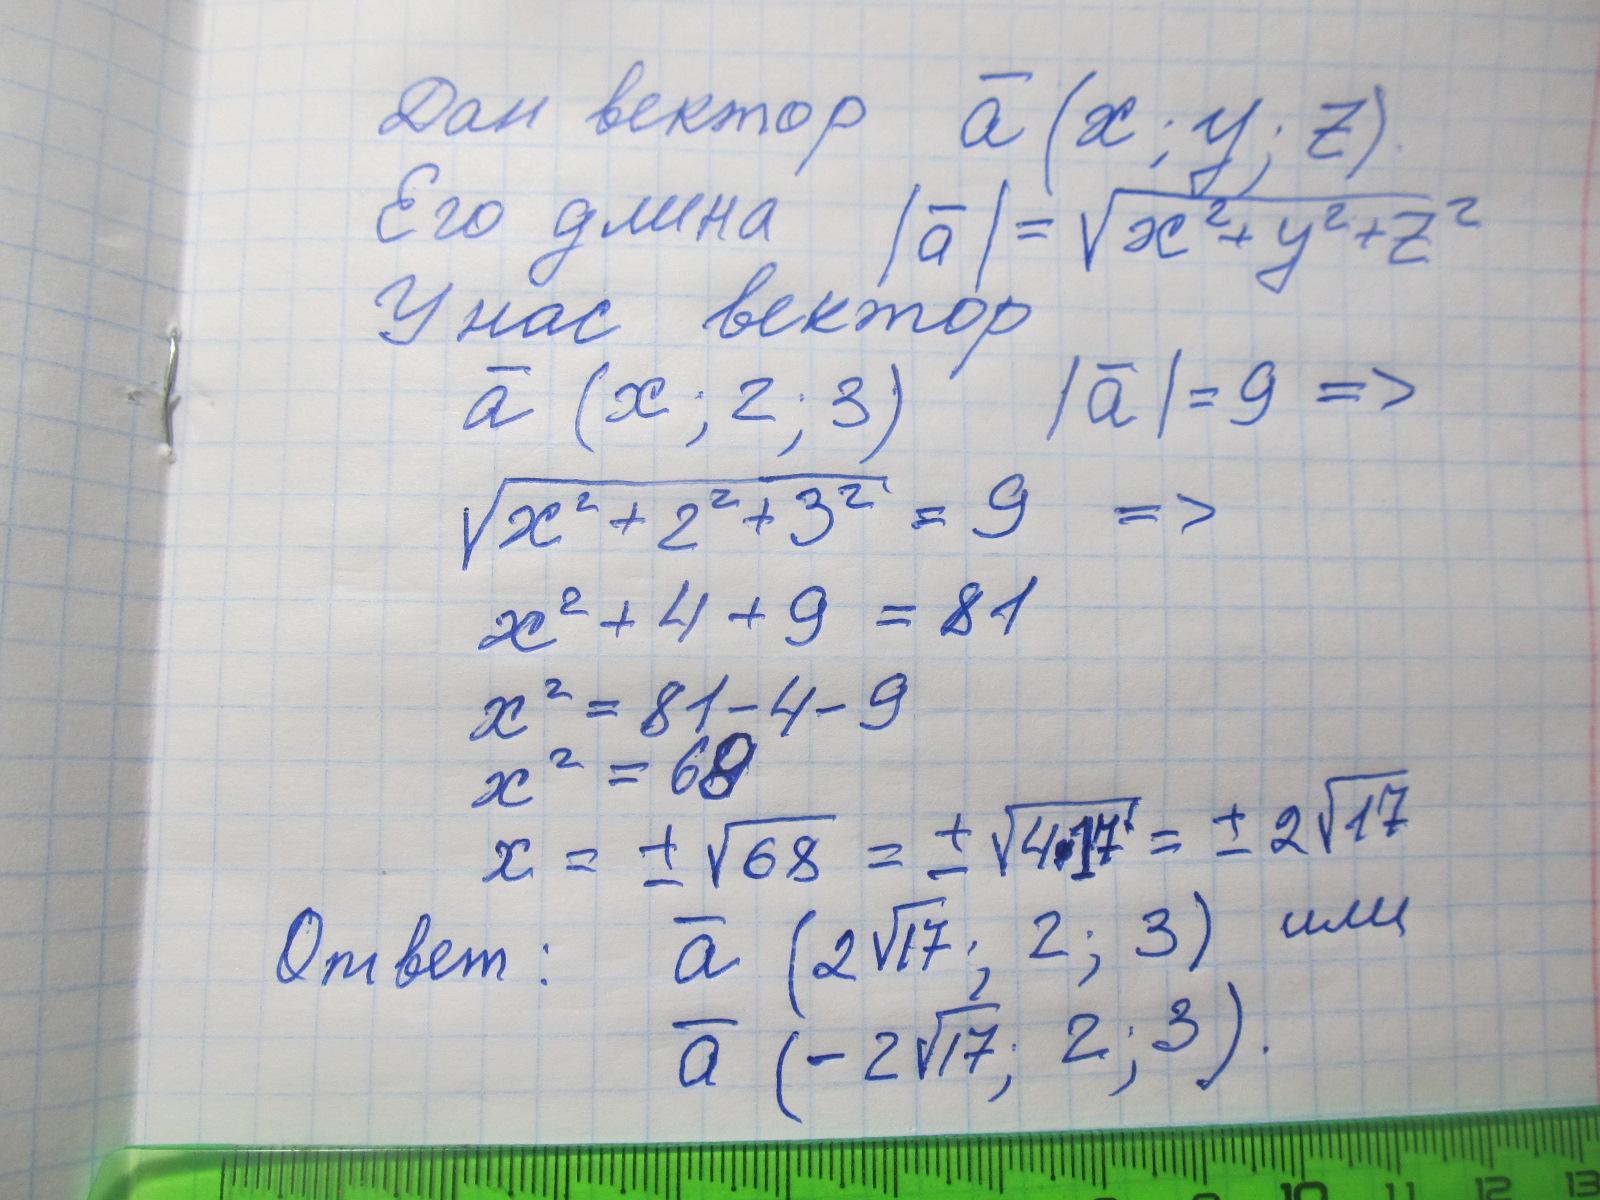 Дан вектор a̅ (x; y; z).
Его длина |a̅| = √x²+y²+z²
У нас вектор
a̅ (x; 2; 3) |a̅| = 9 =>
√x²+2²+3² = 9 =>
x² + 4 + 9 = 81
x² = 81 - 4 - 9
x² = 68
x = ± √68 = ± √4·17 = ± 2√17
Ответ: a̅ (2√17; 2; 3) или
a̅ (-2√17; 2; 3).
10 11 12 13